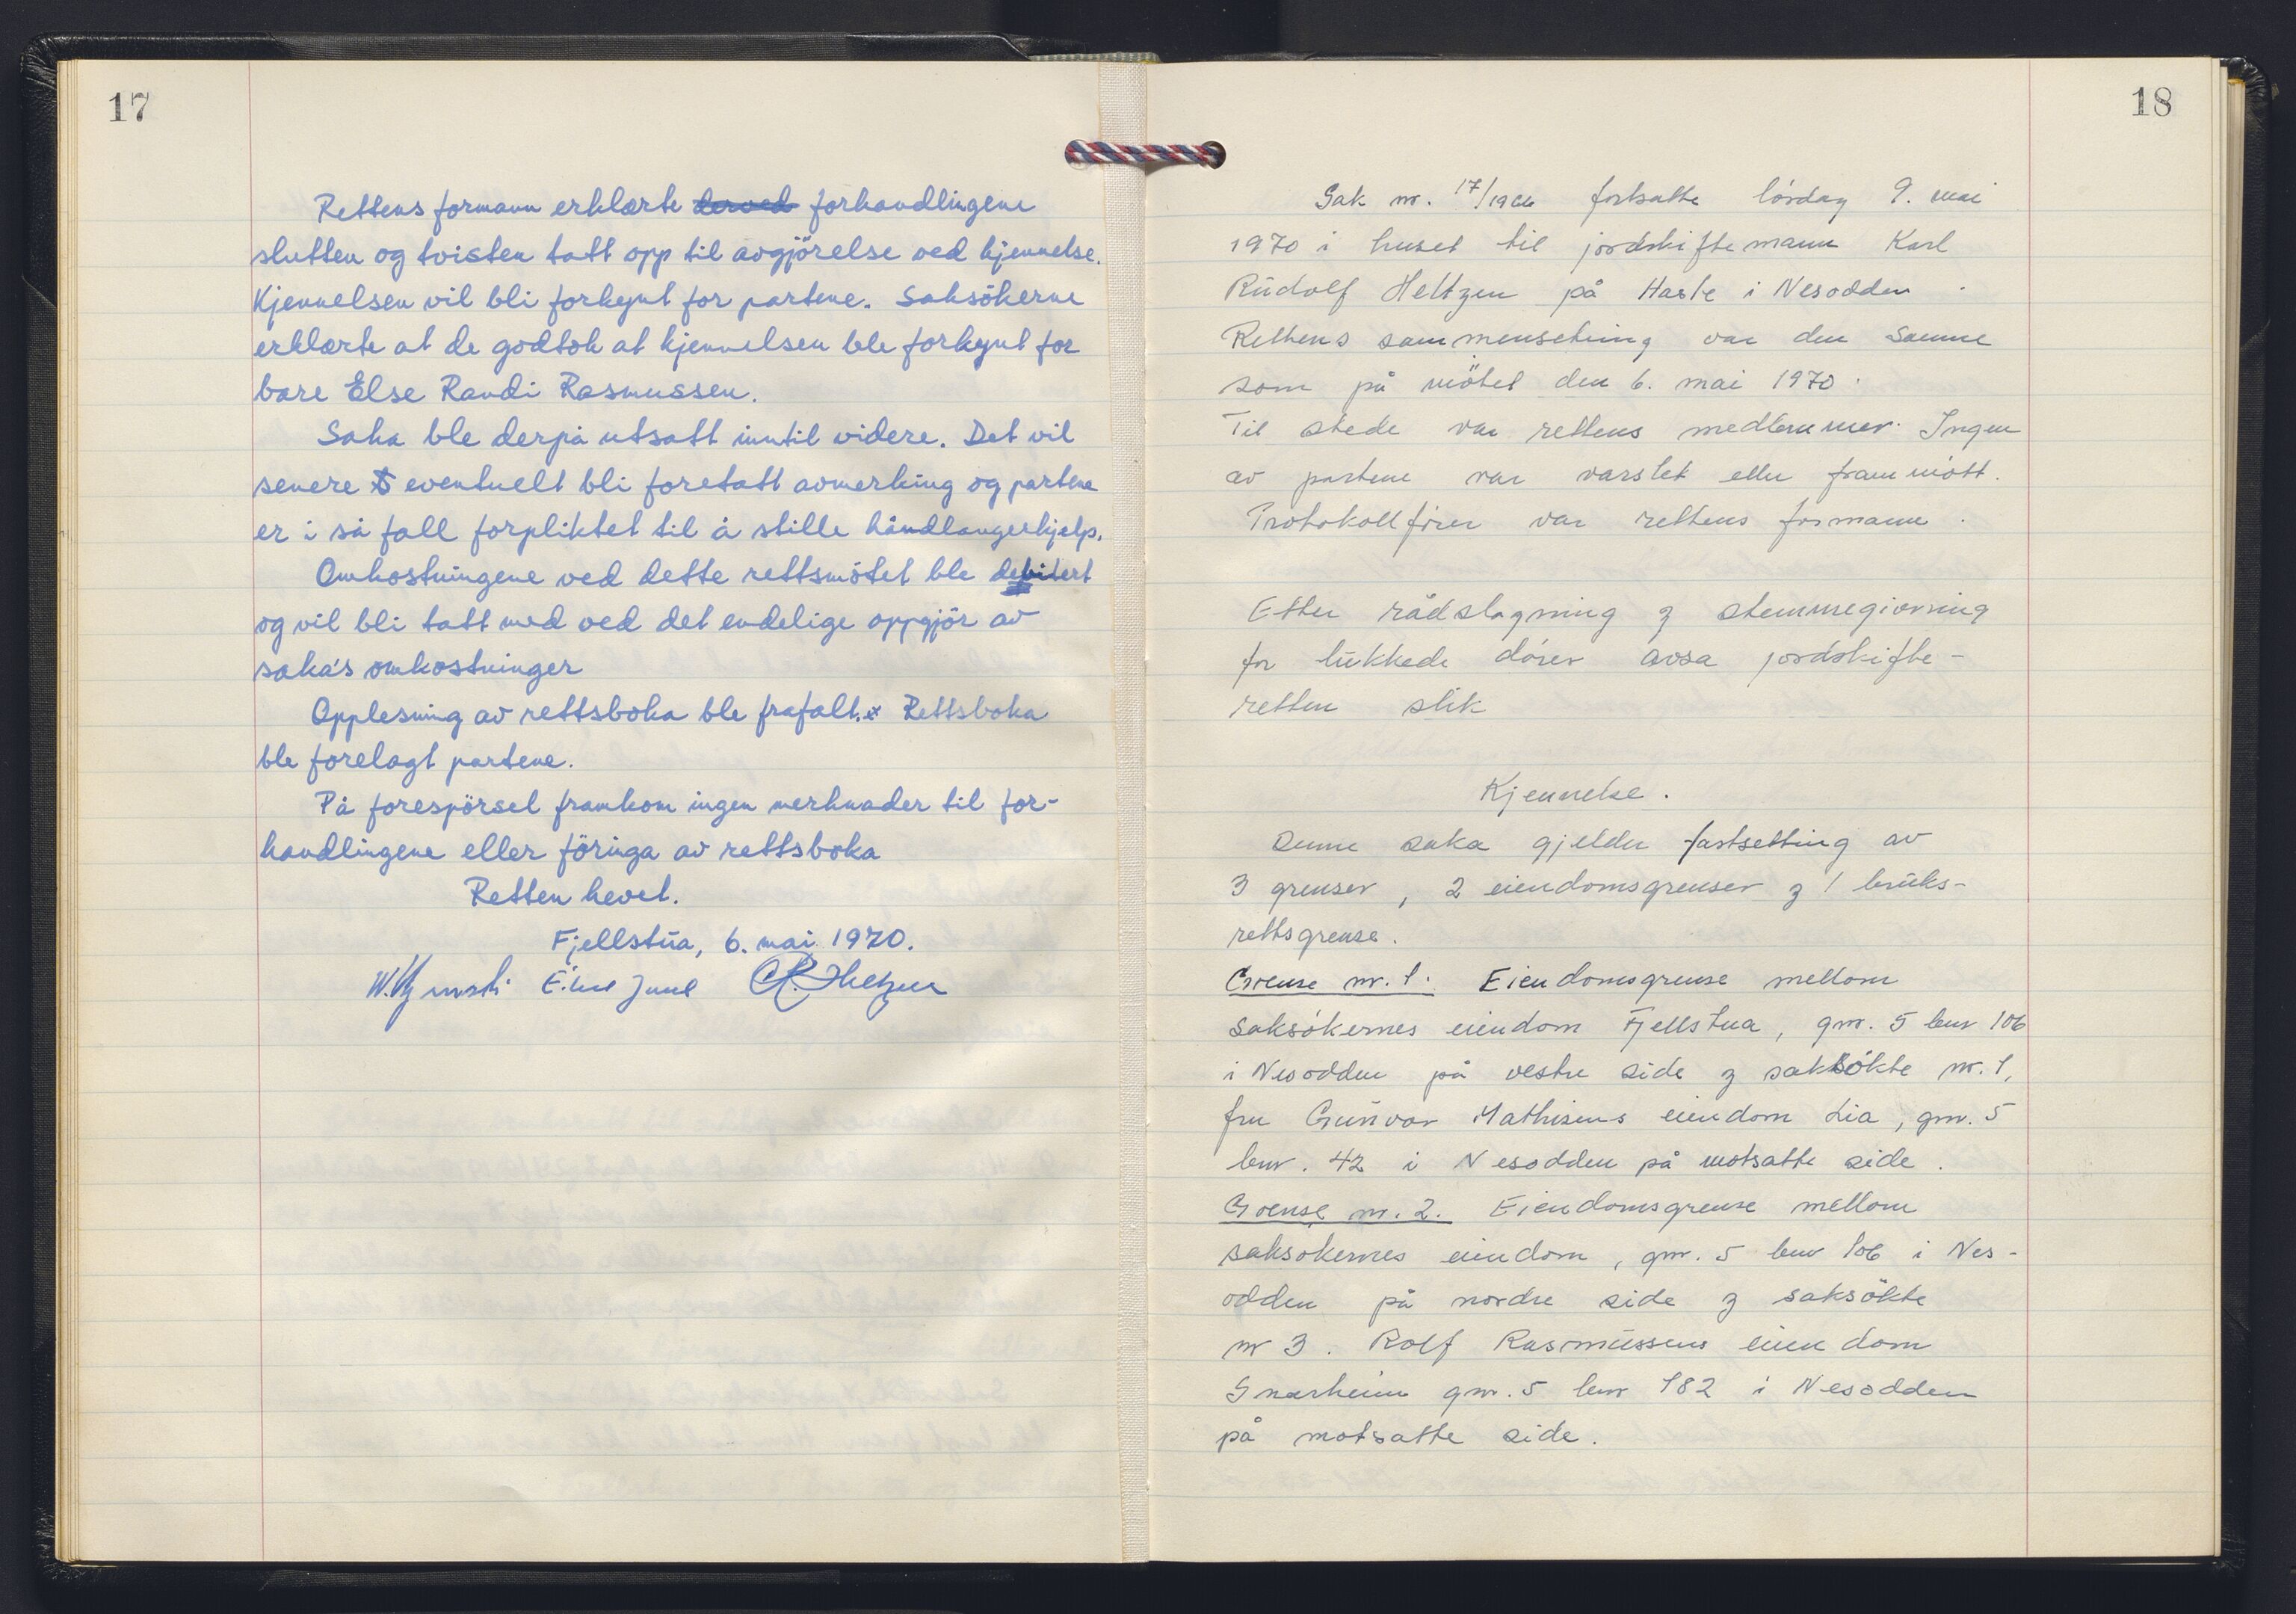 17
Rettens formann erklærte derved forhandlingene
slutten og tvisten tatt opp til avgjörelse ved kjennelse.
Kjennelsen vil bli forkynt for partene. Saksökerne
erklærte at de godtok at kjennelsen ble forkynt for
bare Else Randi Rasmussen.
Saka ble derpå utsatt inntil videre. Det vil
senere eventuelt bli foretatt avmerking og partene
er i så fall forpliktet til å stille håndlangerhjelp.
Omkostningene ved dette rettsmötet ble debitert
og vil bli tatt med ved det endelige oppgjör av
saka's omkostninger
Opplesning av rettsboka ble frafalt. Rettsboka
ble forelagt partene.
På forespörsel framkom ingen merknader til for-
handlingene eller föringa av rettsboka
Retten hevet.
Fjellstua, 6. mai 1970.
18
Sak nr. 17/1966 fortsatte lördag 9. mai
1970 i huset til jordskiftemann Karl
Rudolf Heltzen på Hasle i Nesodden.
Rettens sammensetning var den samme
som på mötet den 6. mai 1970.
Til stede var rettens medlemmer. Ingen
av partene var varslet eller frammött.
Protokollförer var rettens formann.
Etter rådslagning og stemmegivning
for lukkede dörer avsa jordskifte-
retten slik
Kjennelse.
Denne saka gjelder fastsetting av
3 grenser, 2 eiendomsgrenser og 1 bruks-
rettsgrense.
Grense nr. 1. Eiendomsgrense mellom
saksökernes eiendom Fjellstua, gnr. 5 bnr 106
i Nesodden på vestre side og saksökte nr. 1,
fru Gunvor Mathisens eiendom Lia, gnr. 5
bnr. 42 i Nesodden på motsatte side.
Grense nr. 2. Eiendomsgrense mellom
saksökernes eiendom, gnr. 5 bnr 106 i Nes-
odden på nordre side og saksökte
nr 3. Rolf Rasmussens eiendom
Snarheim gnr. 5 bnr 182 i Nesodden
på motsatte side.